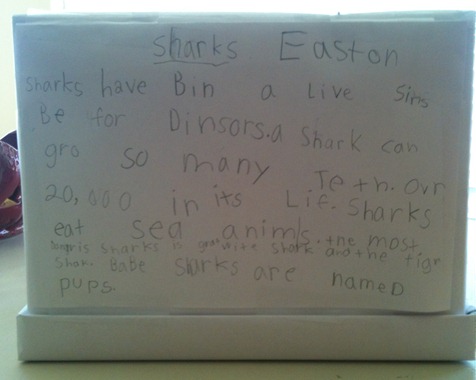 sharks Easton
Sharks have Bin a Live Sins
Be for Dinsors.a Shark can
gro so many Teth. Ovr
20,000 in its Life. Sharks
eat sea animls. the most
sharks is grat wite shark and the tigr
Shar. Babe sharks are named
pups.